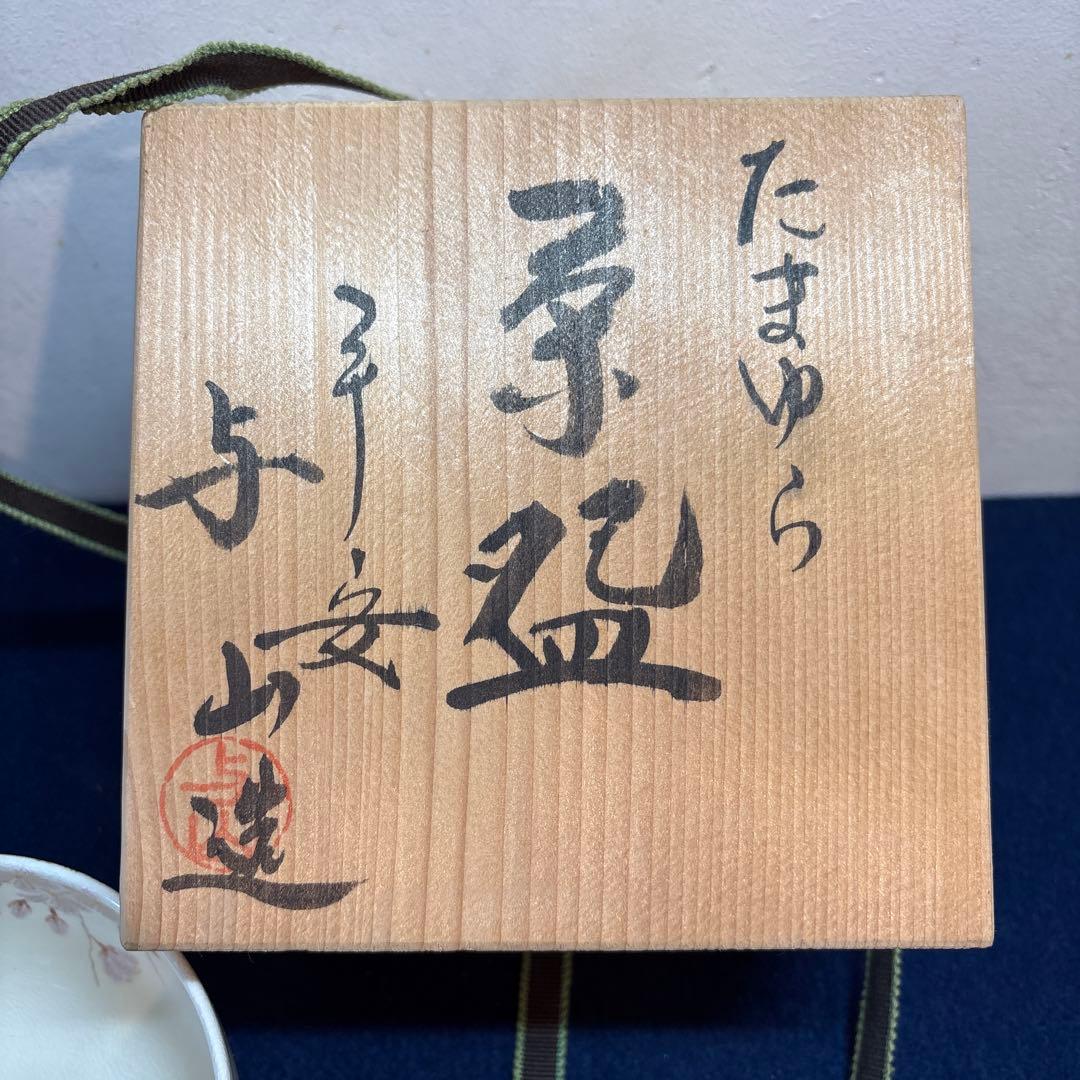 たまゆら
茶盌
平安
与山造